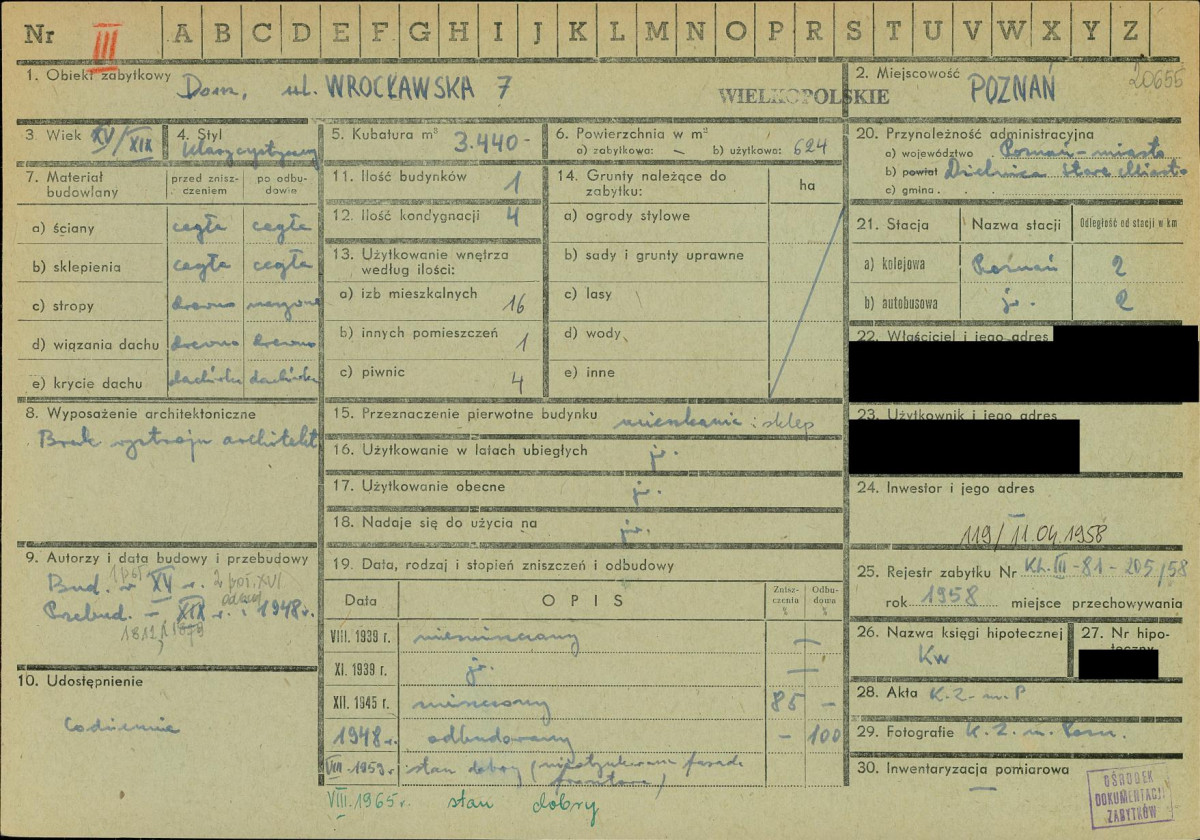 Nr III A B C D E F G H I J K L M N O P R S T U V W X Y Z
1. Obiekt zabytkowy Dom, ul. WROCŁAWSKA 7
WIELKOPOLSKIE
2. Miejscowość POZNAŃ 20655
3. Wiek XV/XIX
4. Styl
5. Kubatura m³ 3.440-
6. Powierzchnia w m²
a) zabytkowa: — b) użytkowa: 624
7. Materiał budowlany
przed zniszczeniem
po odbudowie
a) ściany cegła cegła
b) sklepienia cegła cegła
c) stropy drewno
d) wiązania dachu drewno drewno
e) krycie dachu dachówka dachówka
8. Wyposażenie architektoniczne
Brak wystroju architekt
9. Autorzy i data budowy i przebudowy
1 poł. 2 poł. XVI
Bud. w XV w.
Przebud. – XIX w. i 1948 r.
1812, 1879
10. Udostępnienie
codziennie
11. Ilość budynków 1
12. Ilość kondygnacji 4
13. Użytkowanie wnętrza
według ilości:
a) izb mieszkalnych 16
b) innych pomieszczeń 1
c) piwnic 4
14. Grunty należące do
zabytku: ha
a) ogrody stylowe
b) sady i grunty uprawne
c) lasy
d) wody
e) inne
15. Przeznaczenie pierwotne budynku mieszkanie i sklep
16. Użytkowanie w latach ubiegłych jw.
17. Użytkowanie obecne jw.
18. Nadaje się do użycia na jw.
19. Data, rodzaj i stopień zniszczeń i odbudowy
Data OPIS Zniszczenia % Odbudowa %
VIII. 1939 r. niezniszczony —
XI. 1939 r. jw. —
XII. 1945 r. zniszczony 85 –
1948 r. odbudowany – 100
VIII 1959 r. stan dobry (nieotynkowana fasada
frontowa)
VIII. 1965 r. stan dobry
20. Przynależność administracyjna
a) województwo Poznań-miasto
b) powiat Dzielnica Stare Miasto
c) gmina
21. Stacja Nazwa stacji Odległość od stacji w km
a) kolejowa Poznań 2
b) autobusowa jw. 2
22. Właściciel i jego adres
23. Użytkownik i jego adres
24. Inwestor i jego adres
119/11.04.1958
25. Rejestr zabytku Nr Kl. III-81-205/58
rok 1958 miejsce przechowywania
26. Nazwa księgi hipotecznej
Kw
27. Nr hipoteczny
28. Akta K.Z. m. P
29. Fotografie K.Z. m. Pozn.
30. Inwentaryzacja pomiarowa
—
OŚRODEK
DOKUMENTACJI
ZABYTKÓW